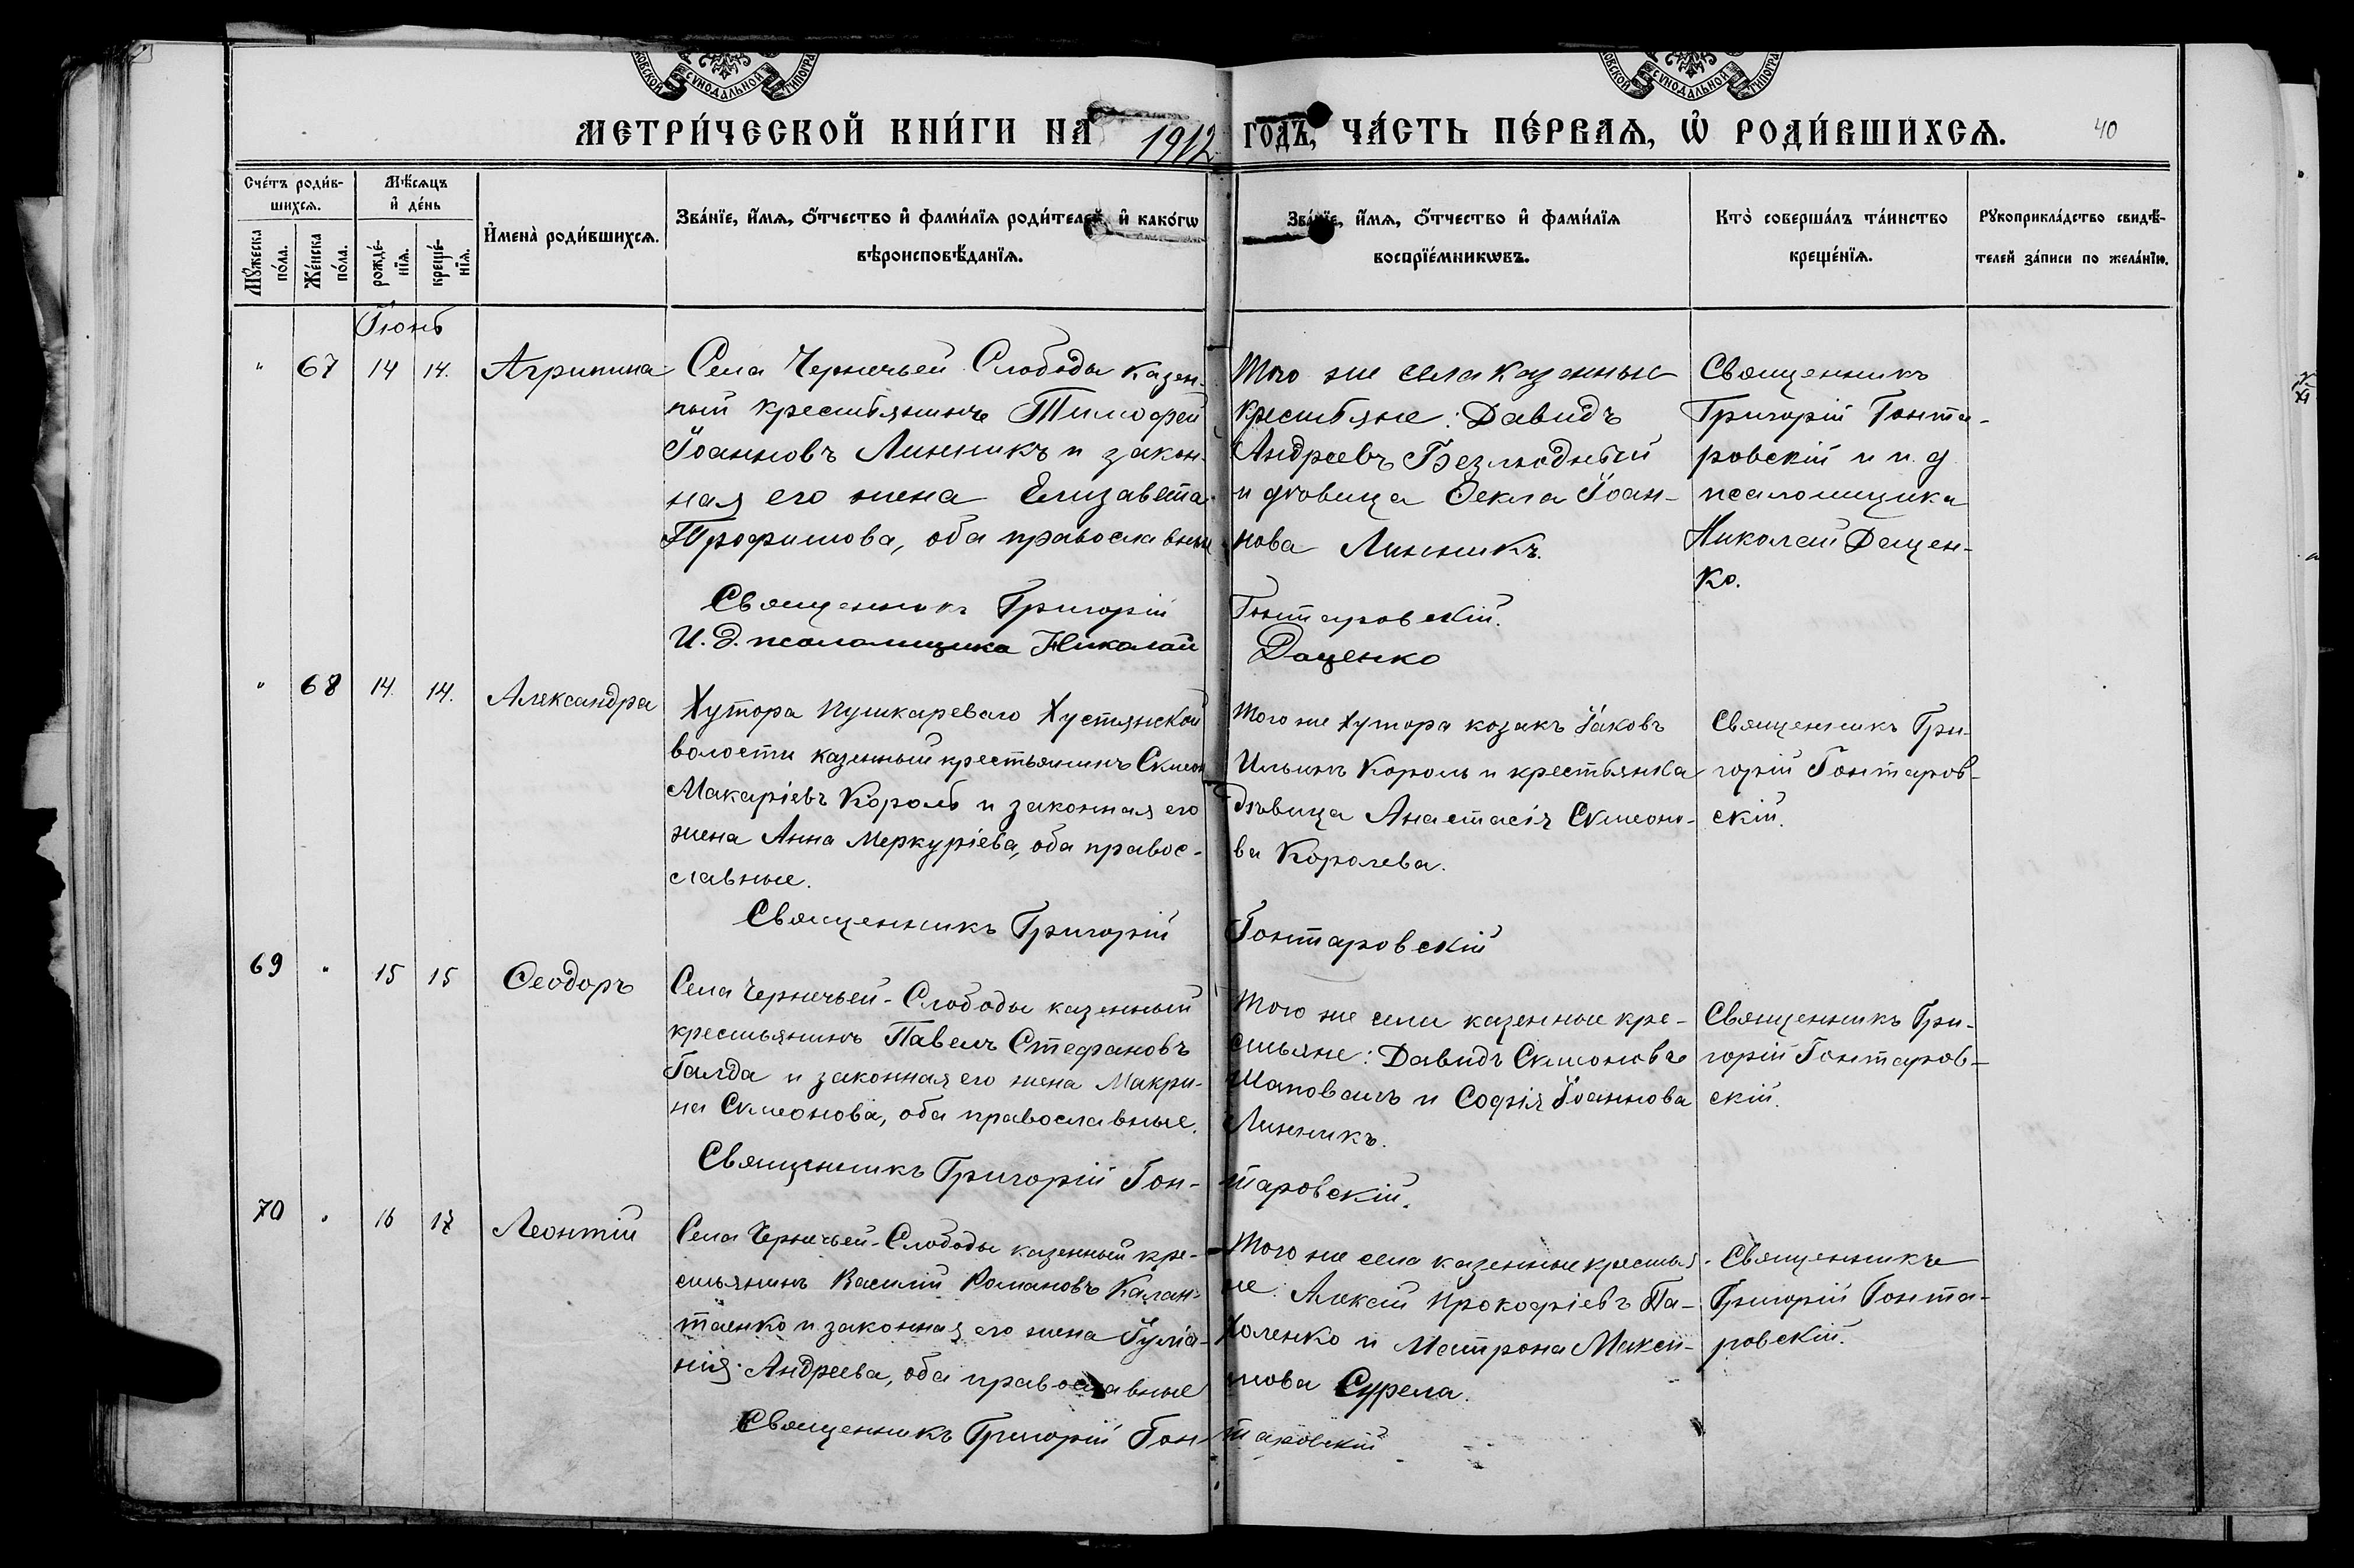 МОСКОВСКОЙ СѴНОДАЛЬНОЙ ТИПОГРАФ
МЕТРИ́ЧЕСКОЙ КНИ́ГИ НА 1912 ГОДЪ, ЧА́СТЬ ПЕ́РВАЯ, Ѡ҆ РОДИ́ВШИХСЯ.
40
Сче́тъ роди́в-
шихся.
Мѣ́сяцъ
и҆ де́нь
И҆мена̀ роди́вшихся.
Зва́нїе, и҆́мя, ѻ҆́тчество и҆ фами́лїя роди́телей, и҆ како́гѡ
вѣроисповѣ́данїя.
Зва́нїе, и҆́мя, ѻ҆́тчество и҆ фами́лїя
воспрїе́мникѡвъ.
Кто̀ соверша́лъ та́инство
креще́нїя.
Рꙋкоприкла́дство свидѣ́-
телей за́писи по жела́нїю.
Мꙋ́жеска
по́ла.
Же́нска
по́ла.
рожде́-
нїя.
креще́-
нїя.
Іюнь
" 67 14 14. Агрипина
Села Чернечьей Слободы казен-
ный крестьянинъ Тимофей
Іоанновъ Линникъ и закон-
ная его жена Елизавета
Трофимова, оба православные
Того же села казенные
крестьяне: Давидъ
Андреевъ Безлюдный
и дѣвица Ѳекла Іоан-
нова Линникъ.
Священникъ
Григорій Гонта-
ровскій и и. д.
псаломщика
Николай Дацен-
ко.
Священникъ Григорій Гонтаровскій.
И. д. псаломщика Николай Даценко
" 68 14. 14. Александра
Хутора Пушкареваго Хустянской
волости казенный крестьянинъ Симеон
Макаріевъ Король и законная его
жена Анна Меркуріева, оба правос-
славные.
Того же хутора козакъ Іаковъ
Ильинъ Король и крестьянка
дѣвица Анастасія Симеоно-
ва Королева.
Священникъ Гри-
горій Гонтаров-
скій.
Священникъ Григорій Гонтаровскій
69 " 15 15 Ѳеодоръ
Села Чернечьей-Слободы казенный
крестьянинъ Павелъ Стефановъ
Галда и законная его жена Макри-
на Симеонова, оба православные.
Того же села казенные кре-
стьяне: Давидъ Симеоновъ
Шаповалъ и Софія Іоаннова
Линникъ.
Священникъ Гри-
горій Гонтаров-
скій.
Священникъ Григорій Гон-таровскій.
70 " 16 17 Леонтій
Села Чернечьей-Слободы казенный кре-
стьянинъ Василій Романовъ Калан-
таенко и законная его жена Іуліа-
нія Андреева, оба православные
Того же села казенные крестья-
не: Алексій Прокофіевъ Па-
холенко и Матрона Макси-
мова Сурела.
Священникъ
Григорій Гонта-
ровскій.
Священникъ Григорій Гон-таровскій